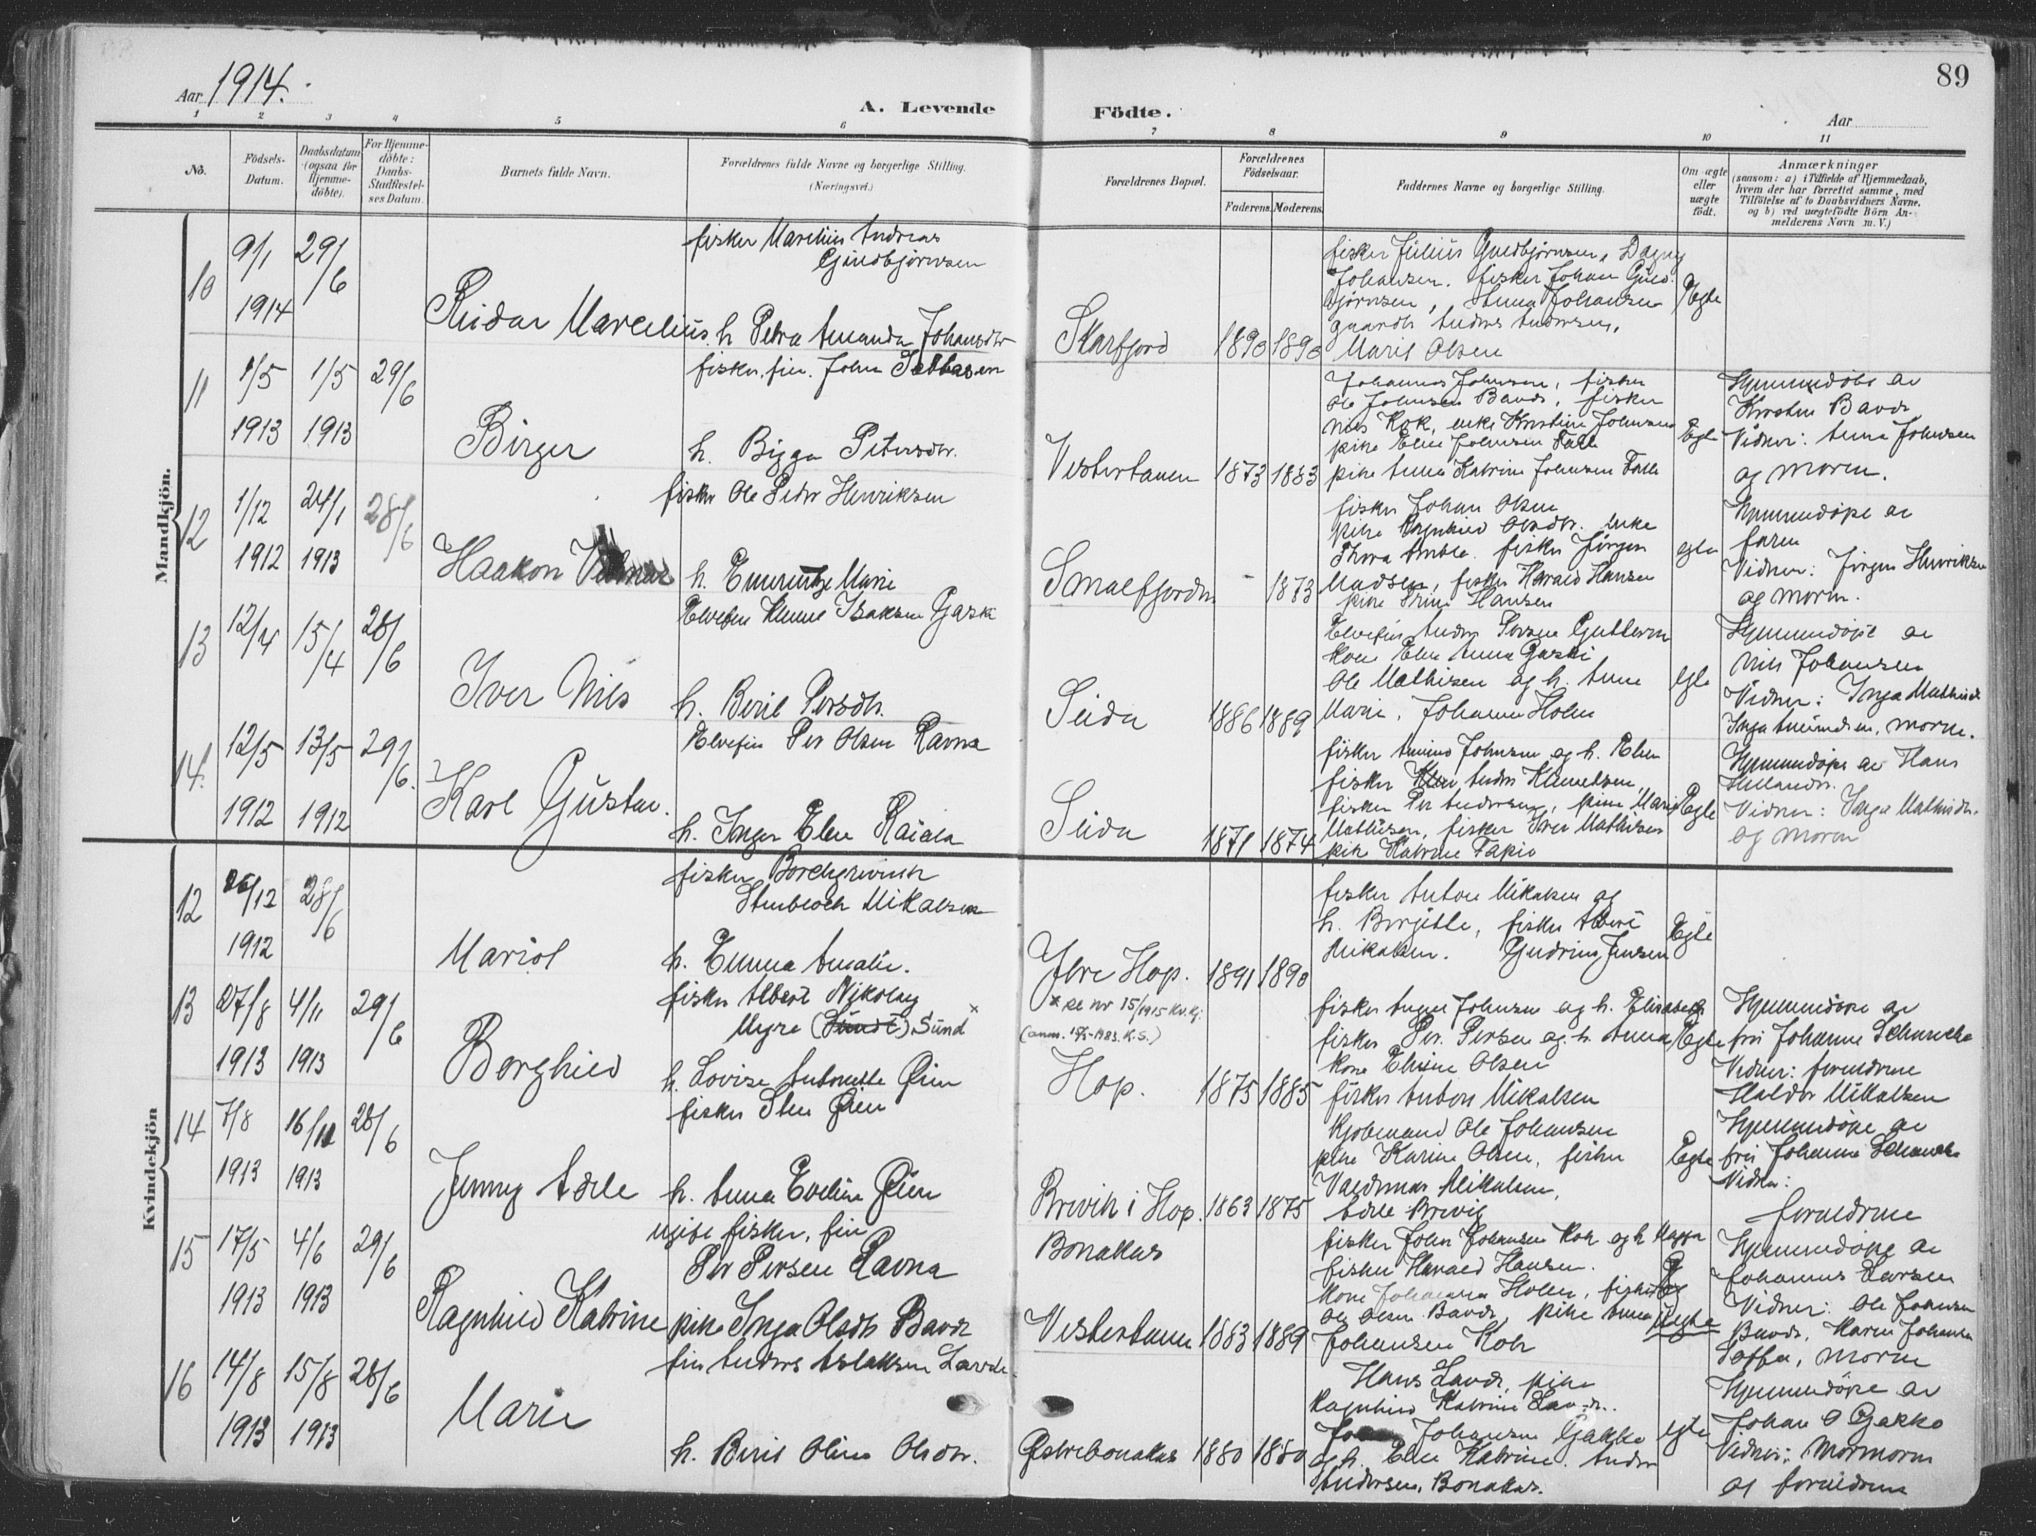 Aar 1914.
A. Levende
Födte.
89
Aar
1
2
3
4
5
6
7
8
9
10
11
No.
Födsels-
Datum.
Daabsdatum
(ogsaa for
Hjemme-
döbte).
For Hjemme-
döbte:
Daabs-
Stadfæstel-
ses Datum.
Barnets fulde Navn.
Forældrenes fulde Navne og borgerlige Stilling.
(Næringsvei.)
Forældrenes Bopæl.
Forældrenes
Födselsaar.
Faderens.
Moderens.
Faddernes Navne og borgerlige Stilling.
Om ægte
eller
uægte
födt.
Anmærkninger
(saasom: a) i Tilfælde af Hjemmedaab,
hvem der har forrettet samme, med
Tilföielse af to Daabsvidners Navne,
og b) ved uægtefödte Börn An-
melderens Navn m. V.)
Mandkjön.
10
9/1
1914
29/6
Reidar Marcelius
fisker Marelius Andreas
Guldbjørnsen
h. Petra Amanda Johansdtr
Skarfjord
1890
1890
fisker Julius Guldbjørnsen, Dagny
Johansen. fisker Johan Guld-
bjørnsen, Anna Johansen
gaardb. Anders Andersen,
Marit Olsen
Ægte
11
1/5
1913
1/5
1913
29/6
Birger
fisker, fin. John
h. Bigga Petersdtr.
Vestertanen
1873
1883
Johannes Johnsen, fisker
Ole Johnsen Banda, fisker
Nils Kok, enke Kristine Johnsen
pike Elen Johnsen
pike Anna Katrine Johnsen
Ægte
Hjemmedøbt av
Kirstin
Vidner: Anna Johnsen
og moren.
12
1/12
1912
24/1
1913
28/6
Haakon
fisker Ole Peder Henriksen
h. Emerentze Marie
Smalfjorden
-
1873
fisker Johan Olsen
pike Ragnhild Olsdtr. enke
Thora fisker Jørgen
Madsen, fisker Harald Hansen
pike Hansen
egte
Hjemmedøpt av
faren
Vidner: Jørgen Henriksen
og moren.
13
12/4
15/4
28/6
Iver Nils
Elvefin Klemet Isaksen
h. Berit Persdtr.
Seida
1886
1889
Elvefin Anders Persen Guttorm
Kone Elen Anna
Ole Mathisen og h. Anne
Marie, Johanne Holm
egte
Hjemmedøpt av
Nils Johansen
Vidner: Inga Mathisdr
Inga moren.
14.
12/5
1912
13/5
1912
29/6.
Karl Gustav.
Elvefin Per Olsen Ravna
h. Inger Elen
Seida
1871
1874
fisker Johnsen og h. Elen
fisker Anders Klemetsen,
fisker Per Andersen, pike Marie
Mathisen, fisker Iver Mathisen
pike Katrine Tapio
Ægte
Hjemmedøpt av Hans
Vidner: Inga Mathisdtr.
og moren
Kvindekjön
12
26/12
1912
28/6
Mariot
fisker Borchgrevink
Stenbock Mikalsen
h. Emma Amalie.
Ytre Hop.
1891
1890
fisker Anton Mikalsen og
h. Birgitte, fisker Albert
Mikalsen. Gudrun Jensen
Ægte
13
27/8
1913
4/11
1913
29/6
Borghild
fisker Albert Nikolay
Myre (Sundt) Sund x
h. Lovise Antonette Øien
x se nr 15/1915 Kv.kj.
(anm. 1983. K.S.)
Hop.
1875
1885
fisker August Johnsen og h. Elisabeth
fisker Per Persen og h. Anna
kone Elisine Olsen
fisker Anton Mikalsen
Ægte
Hjemmedøpt av
frk Johanne Schanche
Vidner: forældrene
Haldor Mikalsen
14
7/8
1913
16/11
1913
28/6
Jenny Adele
fisker Sten Øien
h. Anna Eveline Øien
Brevik i Hop.
1863
1875
Kjøbmand Ole Johansen
pike Karine Olsen, fisker
Valdemar Mikalsen,
Adele Brevig
Ægte
Hjemmedøpt av
frk Johanne Schanche
Vidner:
forældrene
15
17/5
1913
4/6
1913
29/6
Ragnhild Katrine
ugift fisker, fin
Per Persen Ravna
pike Inga Olsdtr
Bonakas
Vestertanen
1883
1889
fisker John Johansen Kok og h Magga
fisker Harald Hansen.
kone Johanna Holm, fisker
pike Anna
Johansen Kok
uegte
Hjemmedøpt av
Johannes Larsen
Vidner: Ole Johnsen
Karen Johansen
moren
16
14/8
1913
15/8
1913
28/6
Marie
fin Anders Aslaksen
h. Berit Oline Olsdtr.
Østrebonakas
1880
1880
Hans
pike
Ragnhild Katrine
Johansen Gakko
og h. Elen Katrine. Anders
Andersen, Bonakas.
egte
Hjemmedøpt av
Johan O Gakko
Vidner: Mormoren
og forældrene